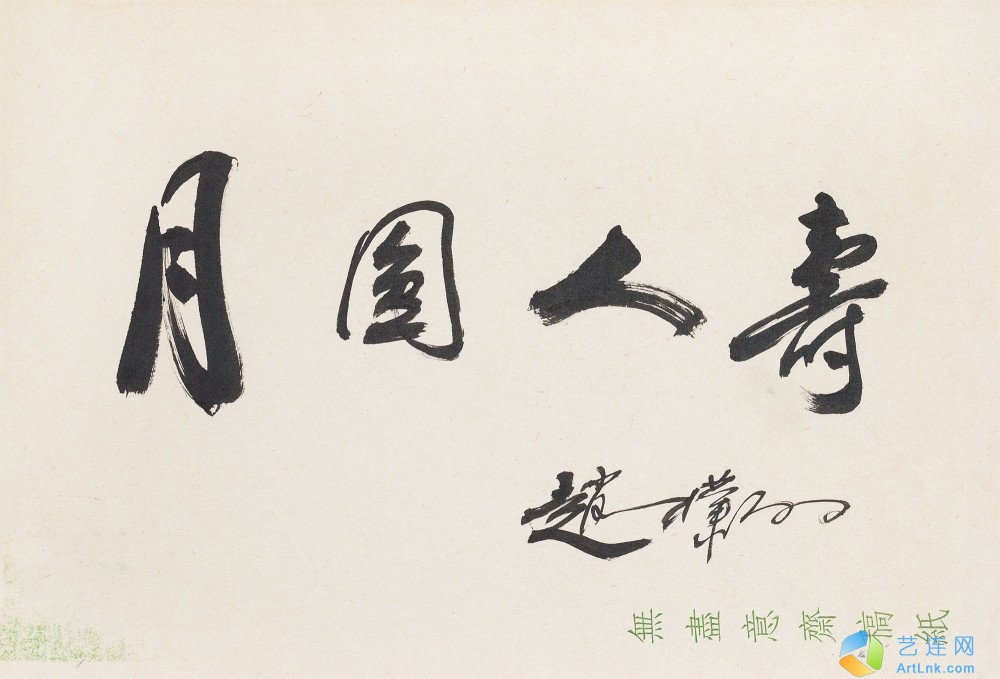 月圆人寿
趙樸初
無盡意齋稿紙
艺连网
ArtLnk.com